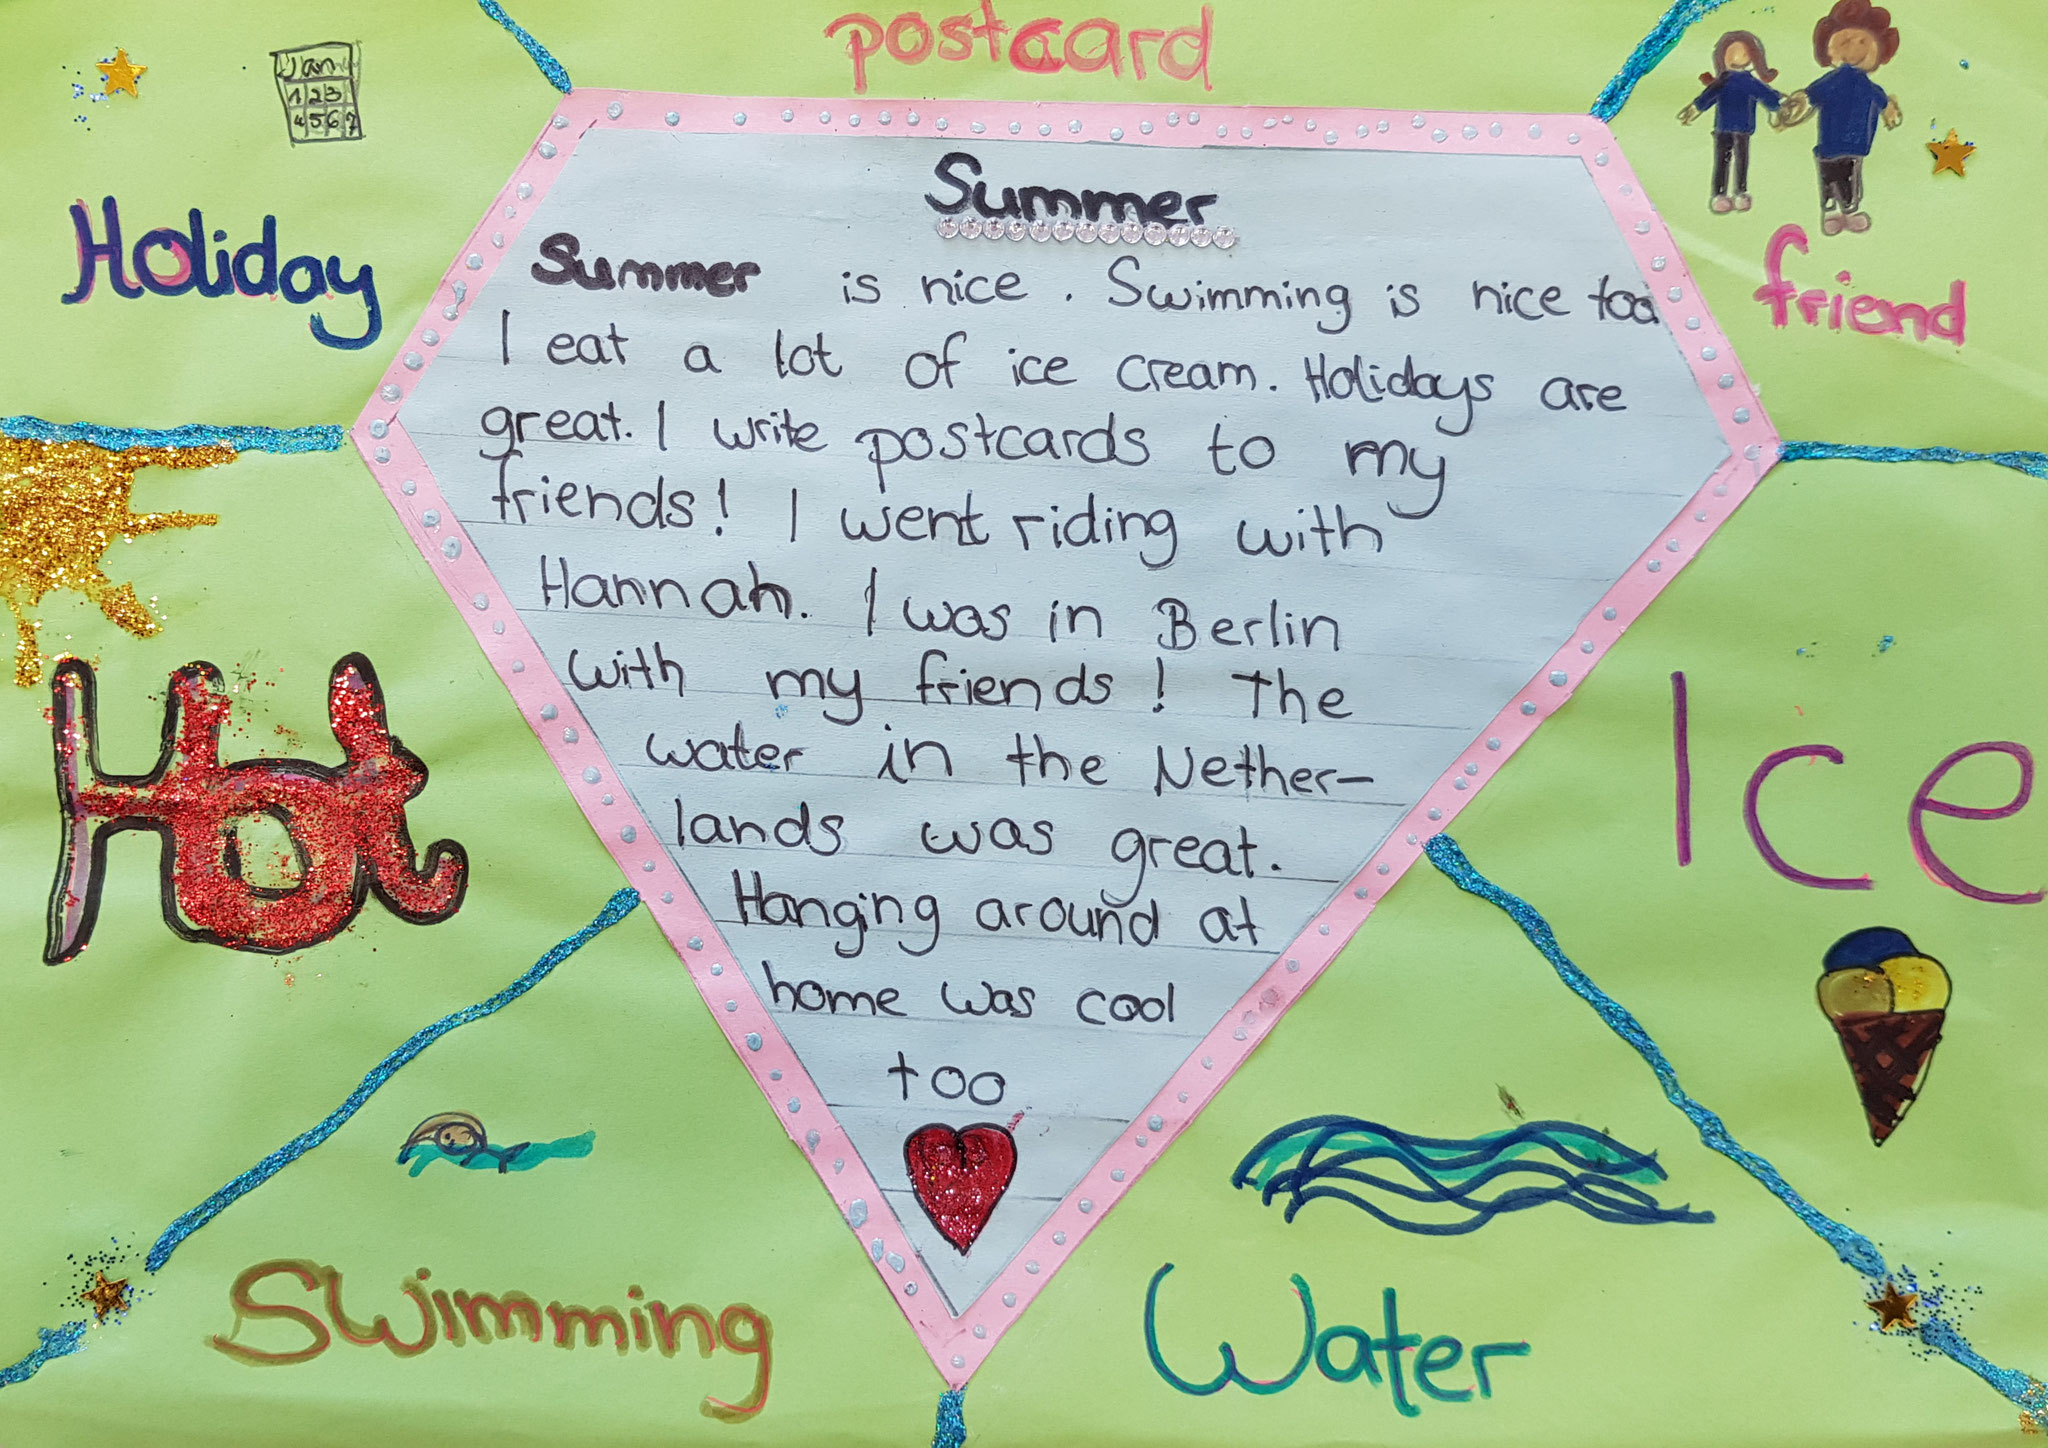 postcard
Jan
1 2 3
4 5 6 7
Holiday
friend
Summer
Summer is nice. Swimming is nice too
I eat a lot of ice cream. Holidays are
great. I write postcards to my
friends! I went riding with
Hannah. I was in Berlin
with my friends! The
water in the Nether-
lands was great.
Hanging around at
home was cool
too
Hot
Ice
Swimming
Water